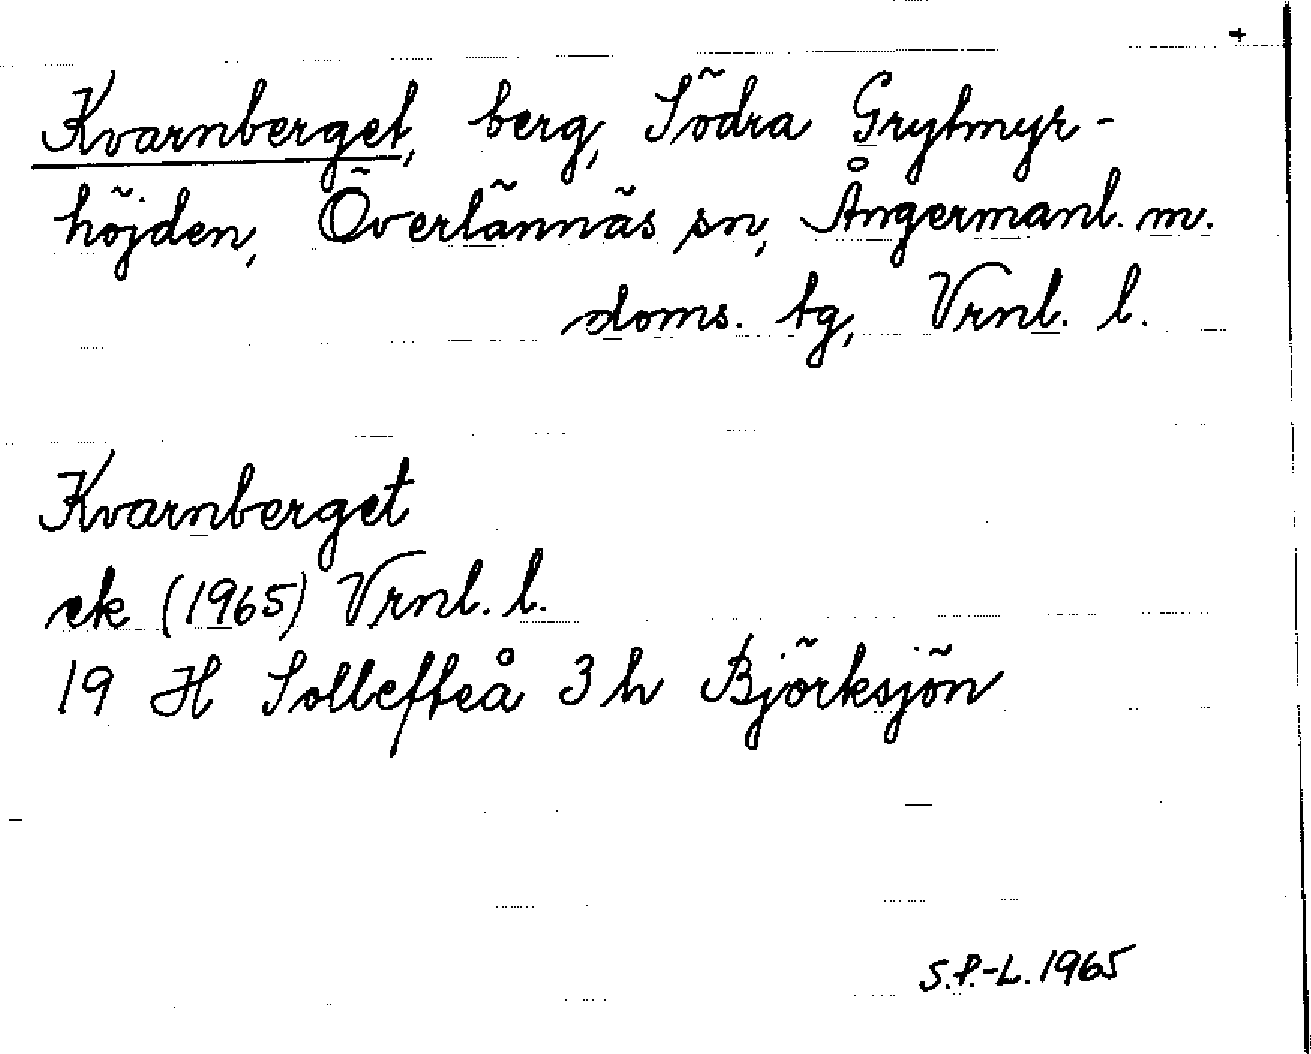 +
Kvarnberget, berg, Södra Grytmyr-
höjden, Överlännäs sn, Ångermanl. m.
doms. tg, Vrnl. l.
Kvarnberget
ek (1965) Vrnl. l.
19 H Sollefteå 3h Björksjön
S.P.-L. 1965